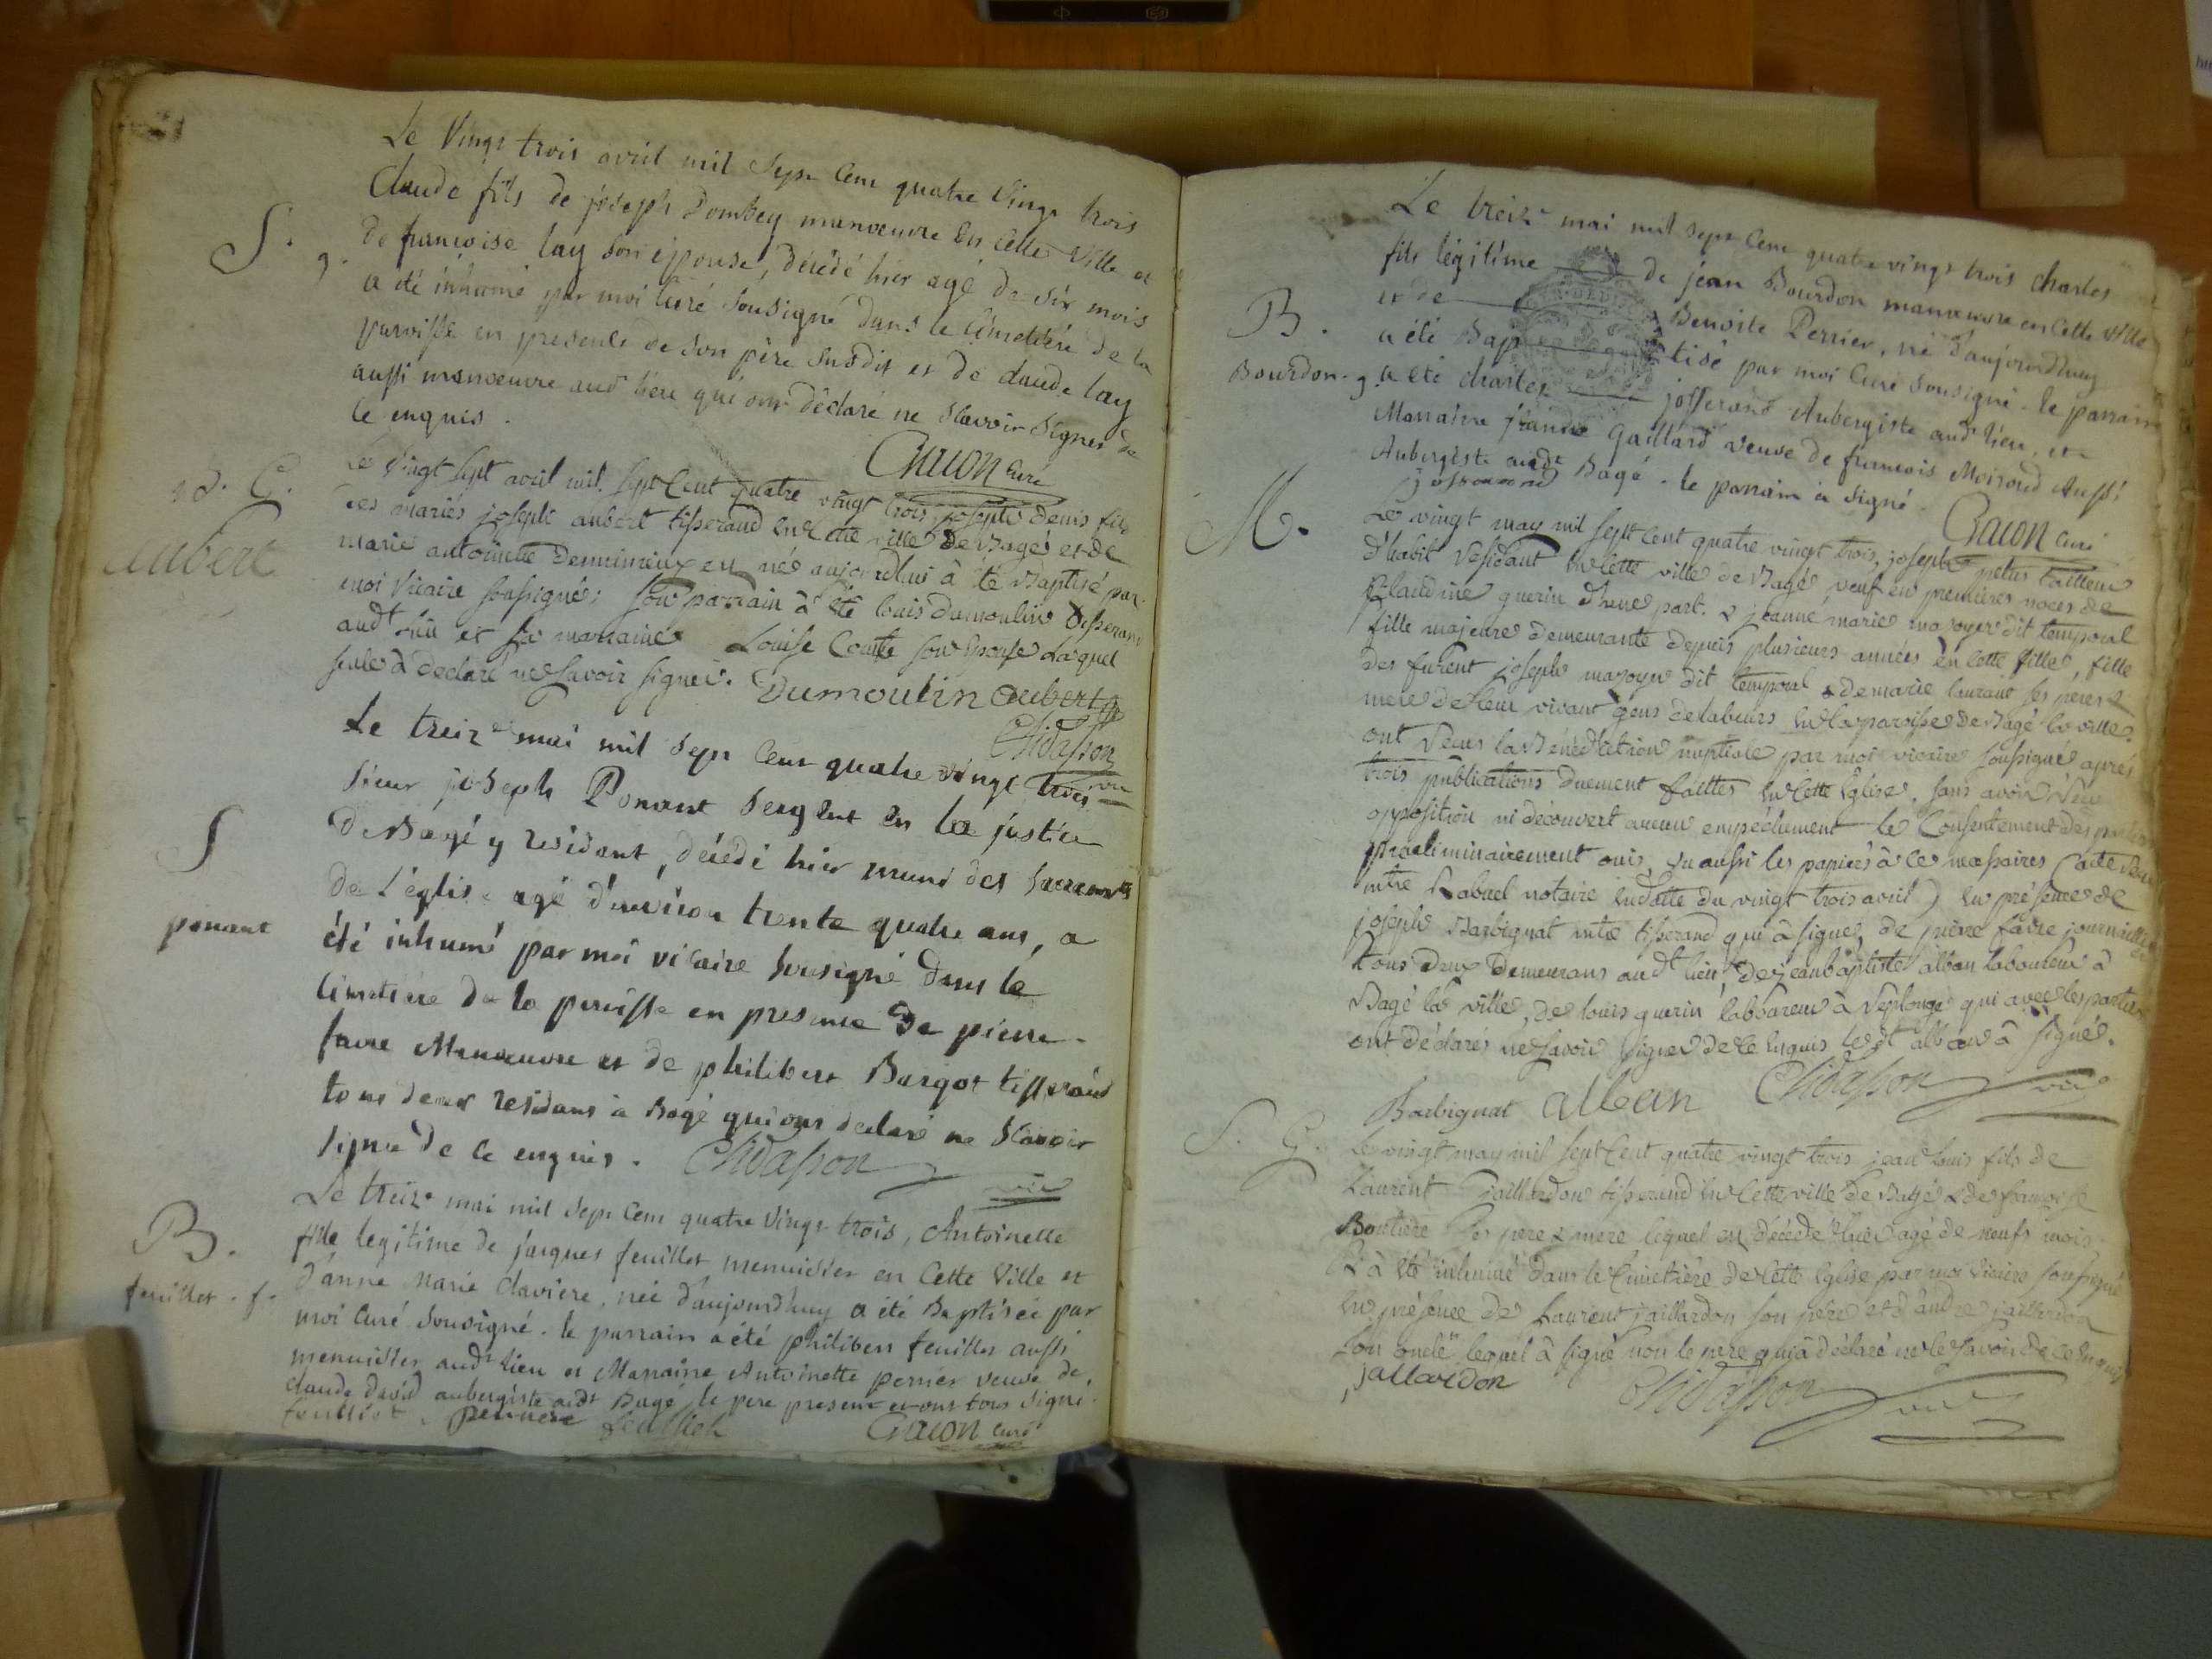 Le Vingt trois avril mil Sept Cent quatre Vingt trois
Claude fils de joseph Dombey manœuvre En Cette Ville et
S. g.
de françoise lay Son épouse, décédé hier agé de Six mois
a été inhumé par moi Curé Sousigné dans le Cimetière de la
paroisse en presence de Son père Susdit et de claude lay
aussi manœuvre aud lieu qui ont déclaré ne Scavoir Signer de
ce enquis.
Gacon Curé
Le vingt sept avril mil Sept Cent quatre vingt trois joseph Denis fils
B. G.
des mariés joseph aubert tisserand en cette ville de Bagé et de
Aubert
marie antoinette en né aujourdhui à été Baptisé par
moi Vicaire soussigné; son parrain à été louis dumoulin tisserand
audt lieu et sa marraine Louise Comte son épouse laquel
seule à déclaré ne savoir signer. Dumoulin Aubert
Chidasson vic
Le treize mai mil Sept Cent quatre vingt trois
Sieur joseph Ponant Sergent en la justice
S
De Bagé y residant, décédé hier muni des Sacrements
De l'église agé d'environ trente quatre ans, a
ponant
été inhumé par moi vicaire Sousigné Dans le
Cimetière De la paroisse en presence De pierre
favre Manœuvre et de philibert Burgot tisserand
tous deux residans à Bagé qui ont declaré ne Scavoir
signer de ce enquis. Chidasson vic
Le treize mai mil Sept Cent quatre Vingt trois, Antoinette
B.
fille legitime de jacques feuillet menuisier en Cette Ville et
feuillet. f.
d'anne Marie Claviere, née d'aujourd'huy a été Baptisée par
moi Curé Sousigné. le parrain a été philibert feuillet aussi
menuisier audt lieu et Marraine Antoinette perrier veuve de
claude david aubergiste audt Bagé, le pere present et ont tous Signé.
feuillet. perriere feuillet Gacon Curé
Le treize mai mil Sept Cent quatre vingt trois charles
fils légitime de jean Bourdon manœuvre en Cette Ville
B.
et de Benoite Perrier, né d'aujourdhuy
a été Baptisé par moi Curé Sousigné. le parrain
Bourdon. g.
a été charles josserand Aubergiste audt lieu, et
Marraine gaillard veuve de francois Moiroud Aussi
Aubergiste audt Bagé. le parrain a signé.
josserand
Gacon Curé
M.
Le vingt may mil sept cent quatre vingt trois, joseph petus tailleur
d'habit résidant en cette ville de Bagé veuf en premieres noces de
Claudine guerin d'une part. & jeanne marie mazoyer dit temporal
fille majeure demeurante depuis plusieurs années en cette ville, fille
des furent joseph mazoyer dit temporal & de marie laurant ses pere &
mere de leur vivant gens de labeurs en la paroisse de Bagé la ville.
ont reçus la Bénédiction nuptiale par moi vicaire soussigné après
trois publications duement faittes en cette Eglise, sans avoir reçu
opposition ni découvert aucun empéchement le Consentement des parties
préliminairement ouis, vu aussi les papiers à ce necessaires (acte reçu
mtre Rabuel notaire en datte du vingt trois avril) en présence de
joseph Barbignat mtre tisserand qui à signé, de pierre favre journallier
tous deux demeurans audt lieu, de jean baptiste alban laboureur à
Bagé la ville, de louis guerin laboureur à Replonge qui avec les parties
ont déclarés ne savoir signer de ce enquis ledt alban à signé.
Barbignat Alban Chidasson vic
S. G.
Le vingt may mil sept cent quatre vingt trois jean louis fils de
Laurent jaillardon tisserand en cette ville de Bagé & de françoise
Boutiere ses pere & mere lequel en décédé hier agé de neufs mois
& à été inhumé dans le Cimetière de cette Eglise par moi vicaire soussigné
en présence de Laurent jaillardon son père et d'andré jaillardon
son oncle lequel à signé non le pere qui à déclaré ne le savoir de ce enquis
jallardon
Chidasson vic